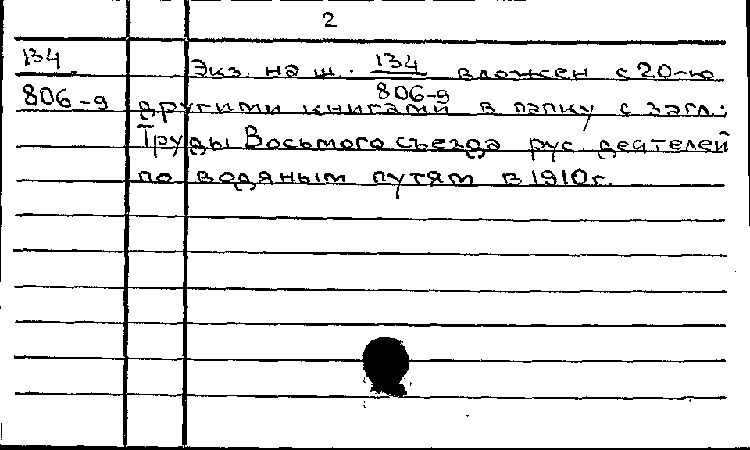 2
134
806-9
Экз. на ш. 134 вложен с 20-ю
806-9
другими книгами в папку с загл.:
Труды Восьмого съезда рус. деятелей
по водяным путям в 1910г.